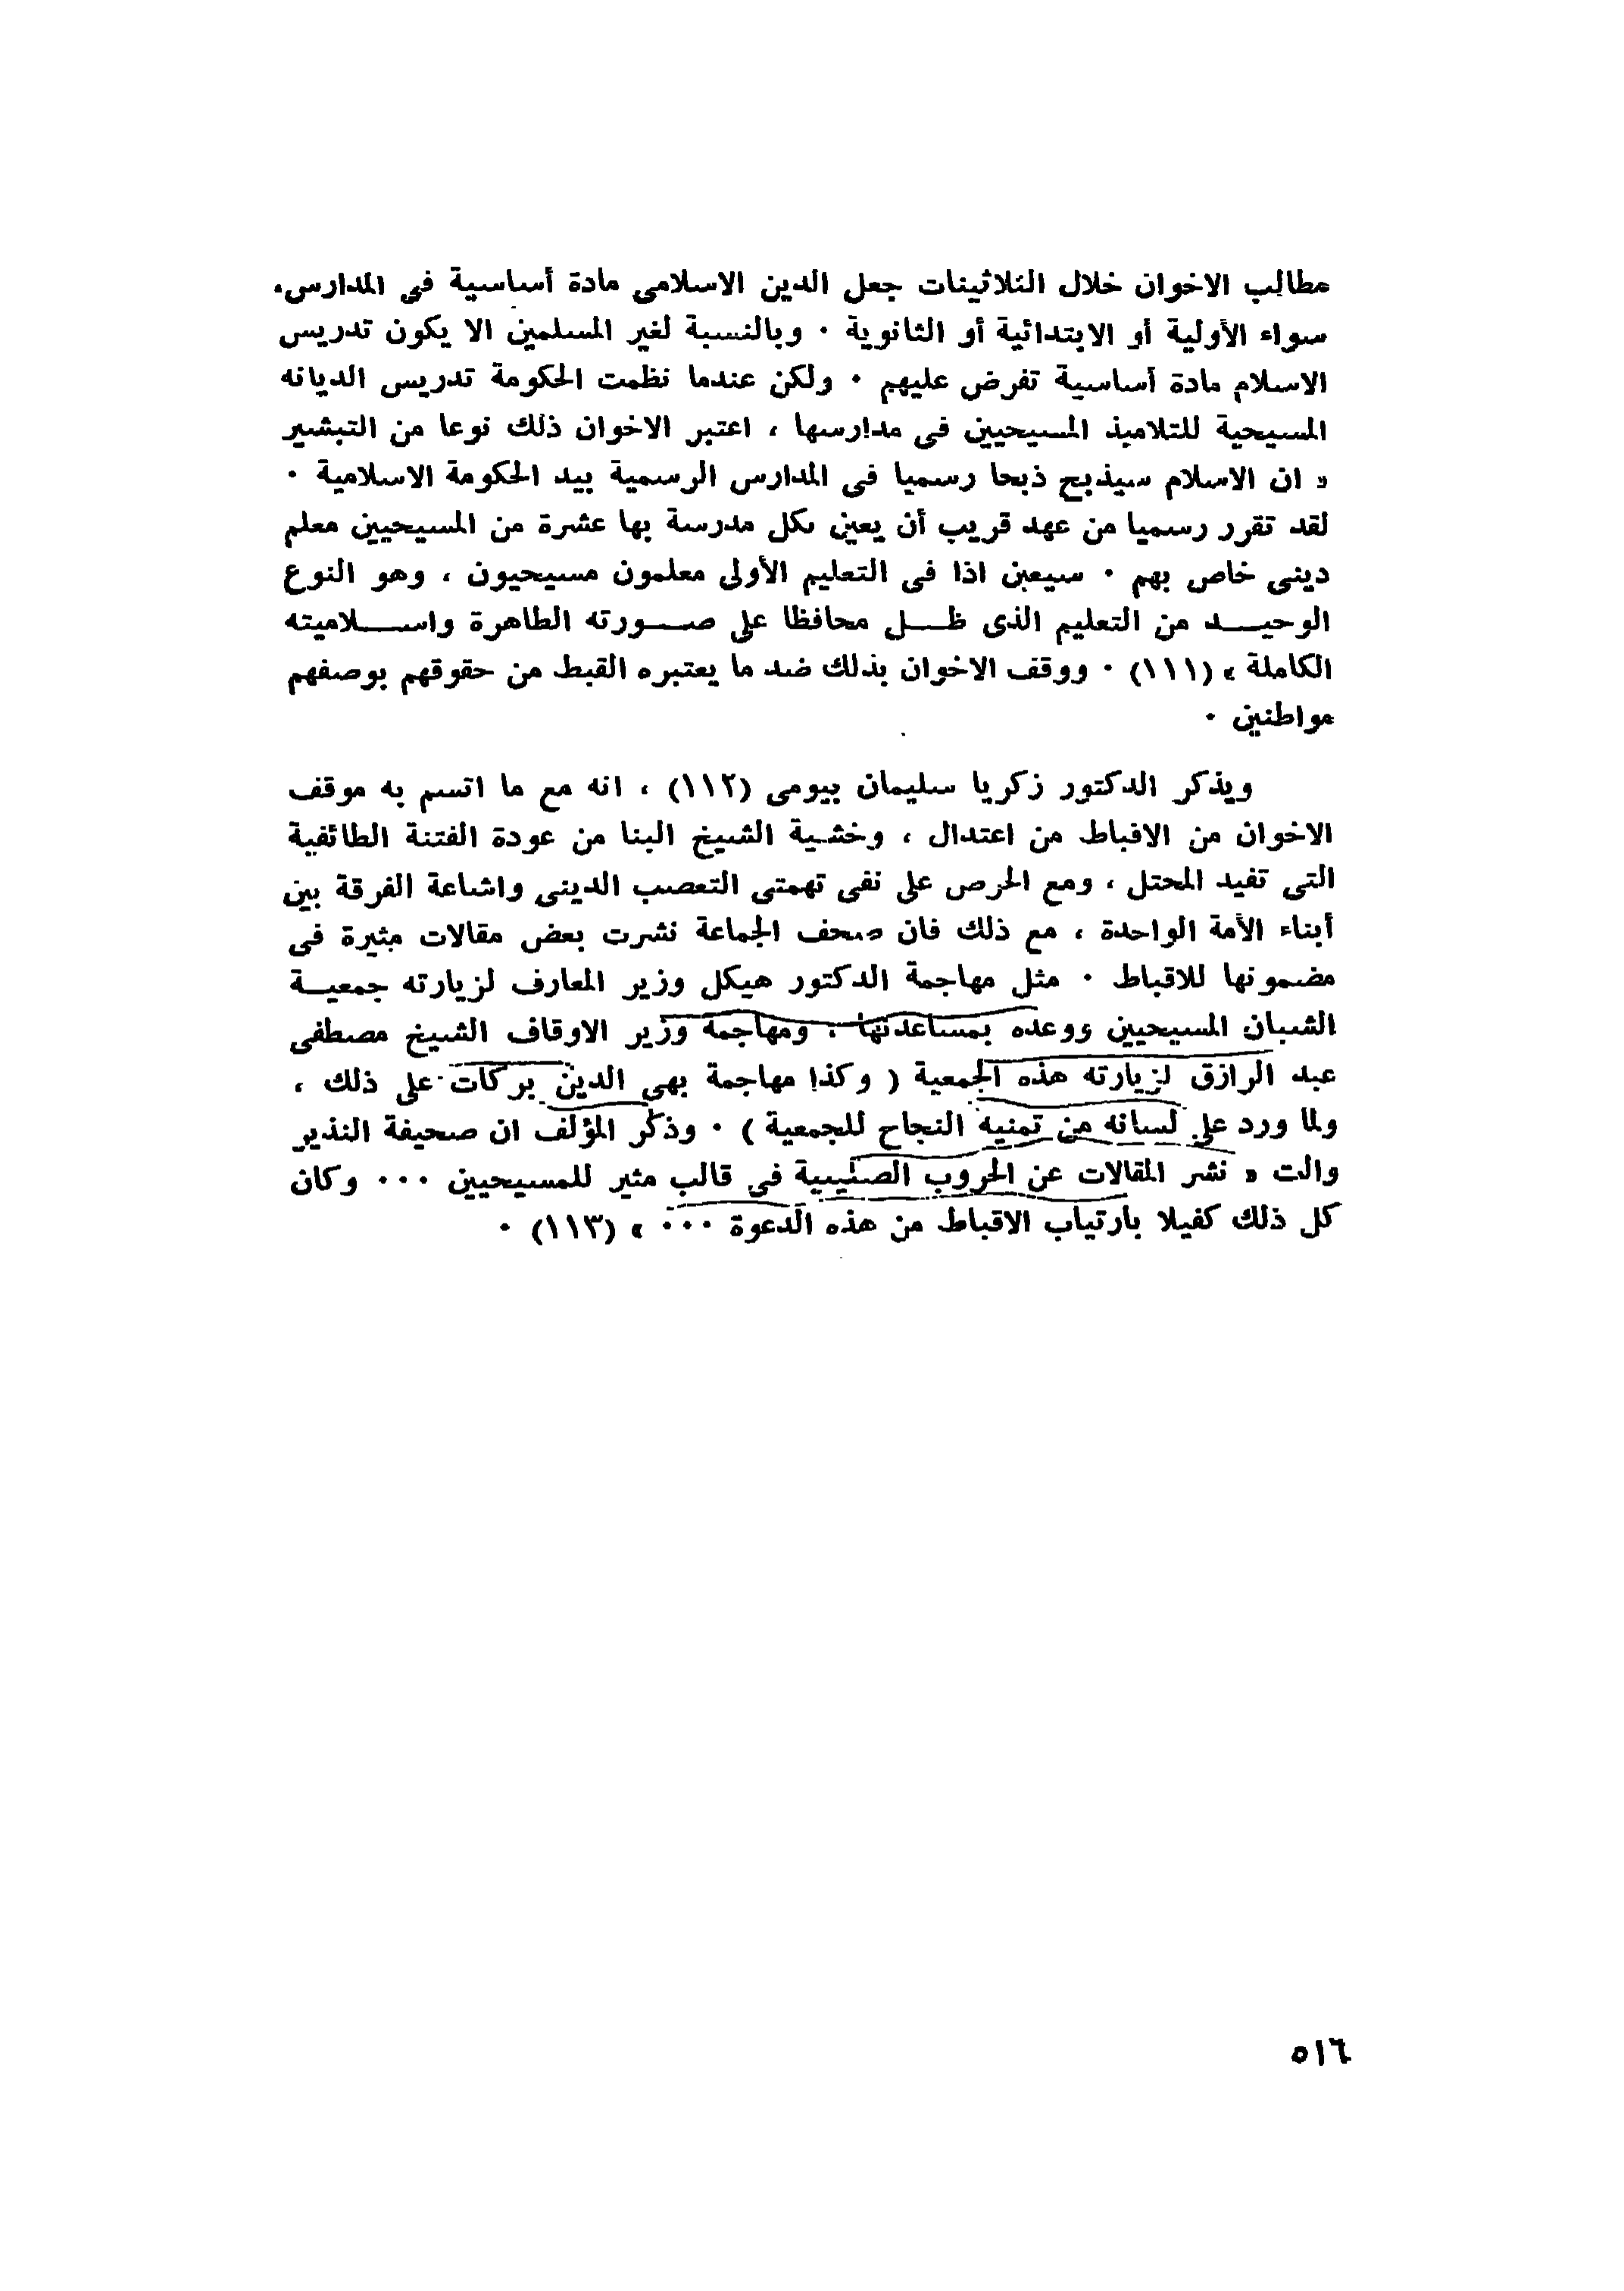 مطالب الاخوان خلال الثلاثينات جعل الدين الاسلامى مادة أساسية فى المدارس،
سواء الأولية أو الابتدائية أو الثانوية ٠ وبالنسبة لغير المسلمين الا يكون تدريس
الاسلام مادة أساسية تفرض عليهم ٠ ولكن عندما نظمت الحكومة تدريس الديانه
المسيحية للتلاميذ المسيحيين فى مدارسها ، اعتبر الاخوان ذلك نوعا من التبشير
« ان الاسلام سيذبح ذبحا رسميا فى المدارس الرسمية بيد الحكومة الاسلامية ٠
لقد تقرر رسميا من عهد قريب أن يعين بكل مدرسة بها عشرة من المسيحيين معلم
دينى خاص بهم ٠ سيعين اذا فى التعليم الأولى معلمون مسيحيون ، وهو النوع
الوحيـــد من التعليم الذى ظـــل محافظا على صـــورته الطاهرة واســـلاميته
الكاملة » (١١١) ٠ ووقف الاخوان بذلك ضد ما يعتبره القبط من حقوقهم بوصفهم
مواطنين ٠
ويذكر الدكتور زكريا سليمان بيومى (١١٢) ، انه مع ما اتسم به موقف
الاخوان من الاقباط من اعتدال ، وخشية الشيخ البنا من عودة الفتنة الطائفية
التى تفيد المحتل ، ومع الحرص على نفى تهمتى التعصب الدينى واشاعة الفرقة بين
أبناء الأمة الواحدة ، مع ذلك فان صحف الجماعة نشرت بعض مقالات مثيرة فى
مضمونها للاقباط ٠ مثل مهاجمة الدكتور هيكل وزير المعارف لزيارته جمعيــة
الشبان المسيحيين ووعده بمساعدتها ، ومهاجمة وزير الاوقاف الشيخ مصطفى
عبد الرازق لزيارته هذه الجمعية ( وكذا مهاجمة بهى الدين بركات على ذلك ،
ولما ورد على لسانه من تمنيه النجاح للجمعية ) ٠ وذكر المؤلف ان صحيفة النذير
والت « نشر المقالات عن الحروب الصليبية فى قالب مثير للمسيحيين ٠٠٠ وكان
كل ذلك كفيلا بارتياب الاقباط من هذه الدعوة ٠٠٠ » (١١٣) ٠
٥١٦